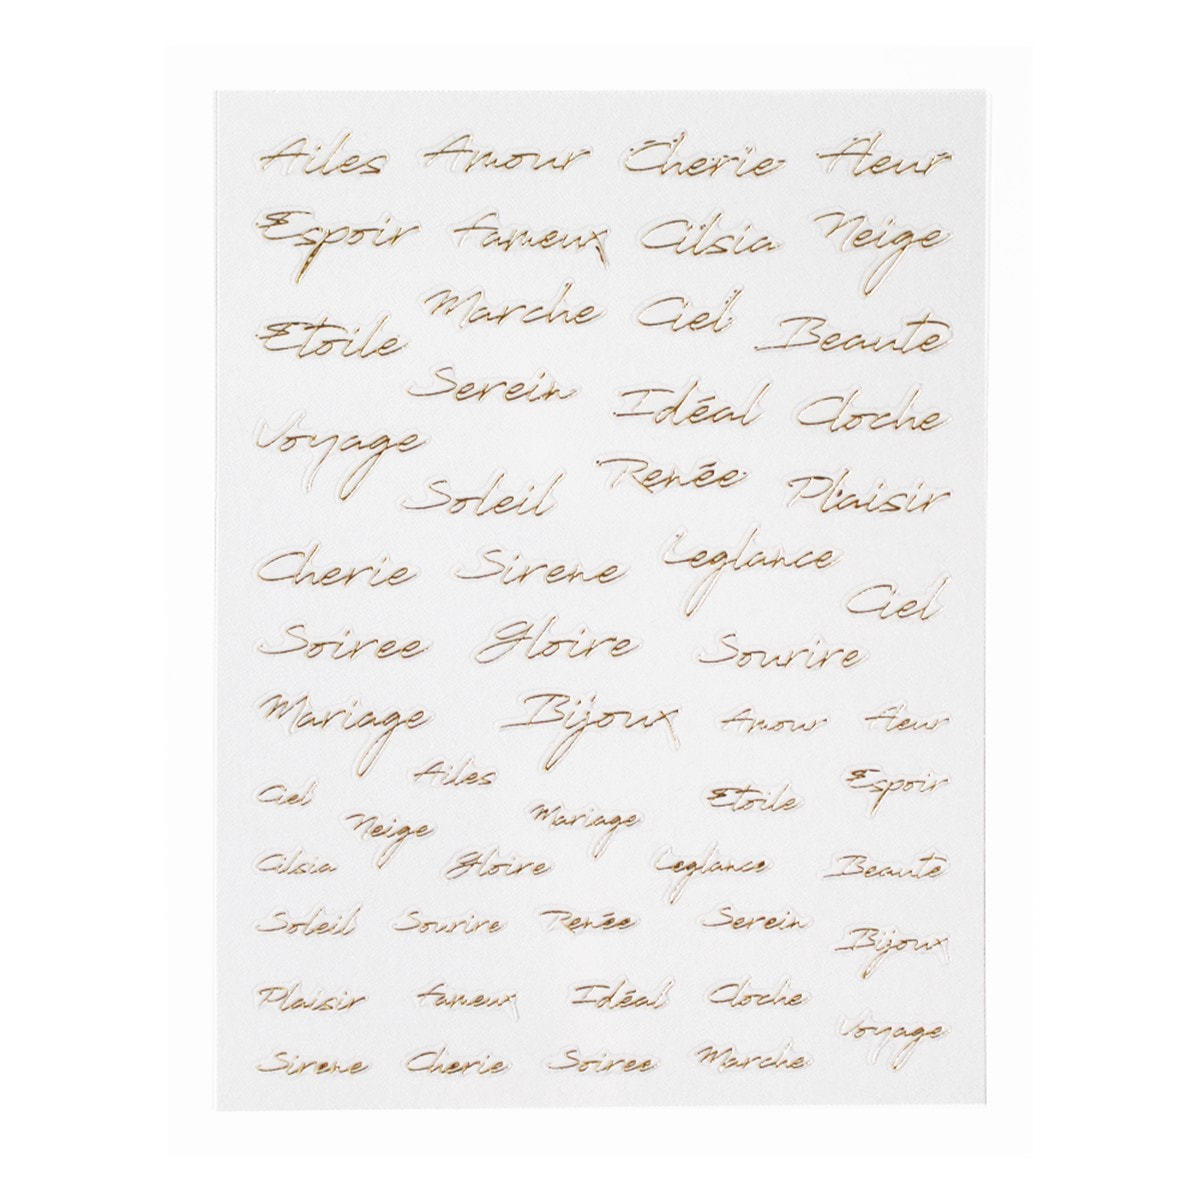 Ailes Amour Cherie Fleur
Espoir fameux Cilsia Neige
Marche Ciel
Etoile Beaute
Serein Idéal Cloche
Voyage
Soleil Renée Plaisir
Cherie Sirene Leglance
Ciel
Soiree Gloire Sourire
Mariage Bijoux Amour Fleur
Ciel Ailes Etoile Espoir
Neige Mariage
Cilsia Gloire Leglance Beaute
Soleil Sourire Renée Serein
Bijoux
Plaisir fameux Idéal Cloche
Voyage
Sirene Cherie Soiree Marche